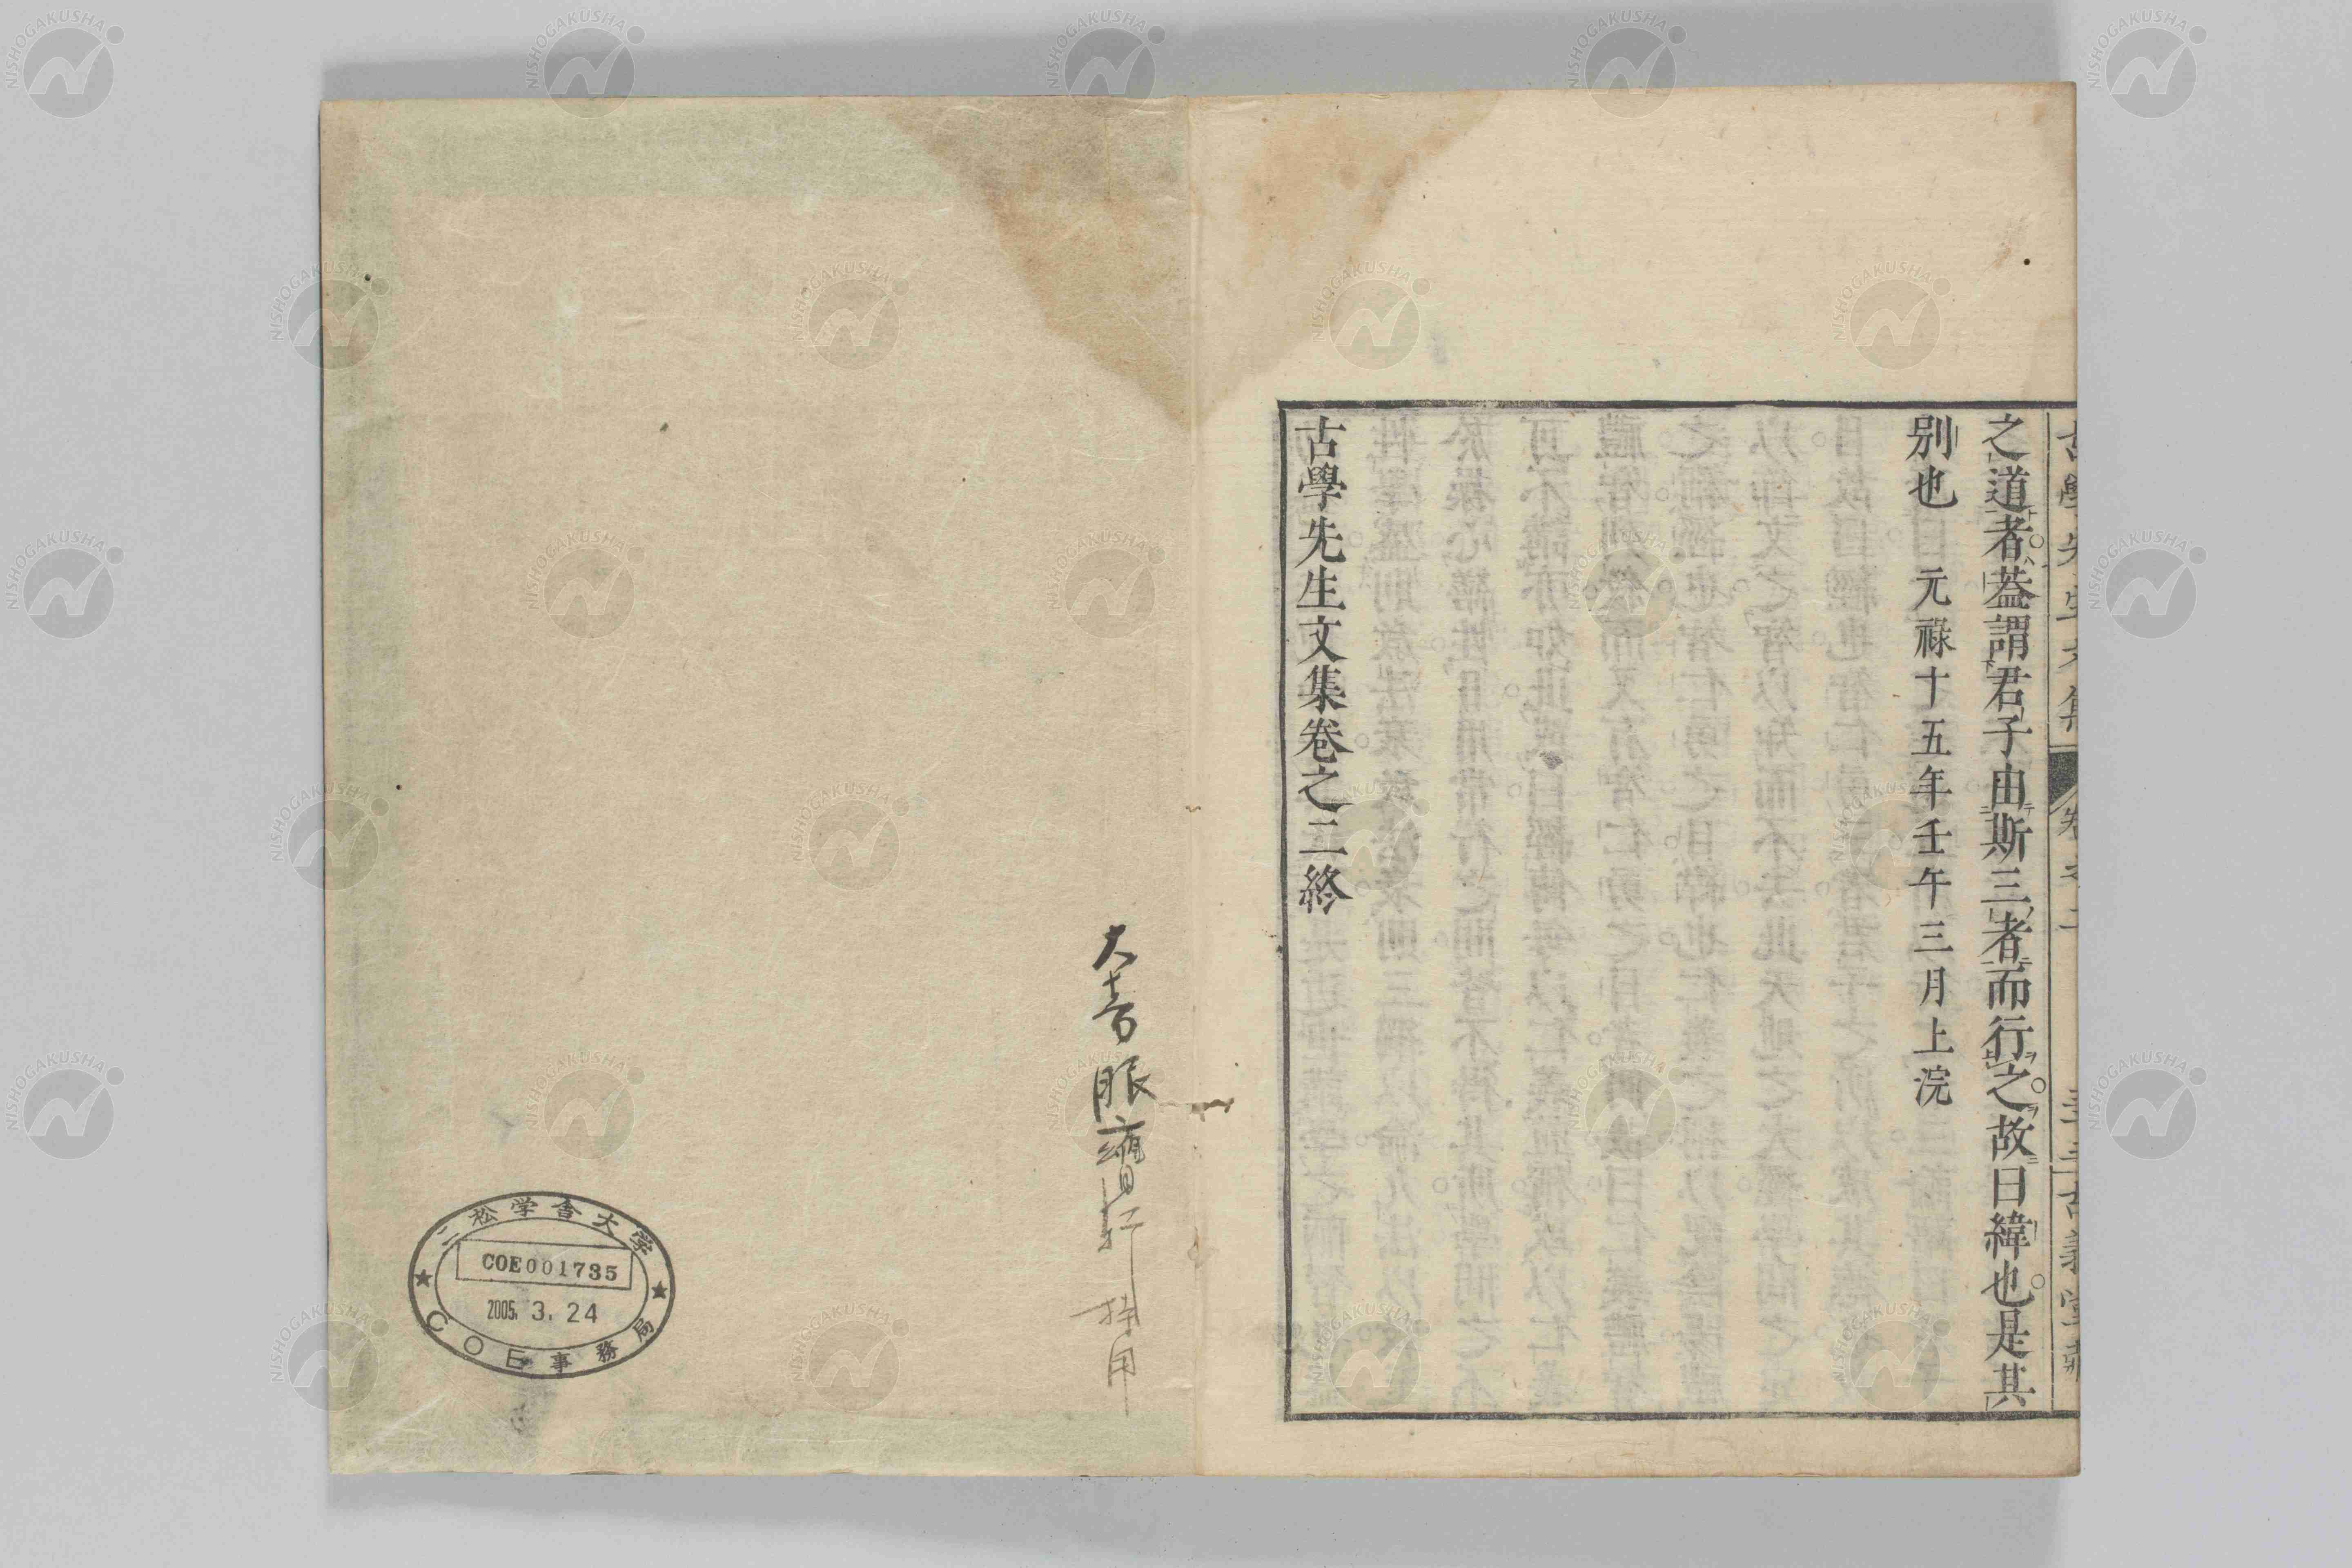 古學先生文集 卷之二 古義堂藏
之道者蓋謂君子由斯三者而行之故曰緯也是其
別也 元祿十五年壬午三月上浣
古學先生文集卷之二終
二松学舎大学
COE001735
2005. 3. 24
COE事務局
NISHOGAKUSHA